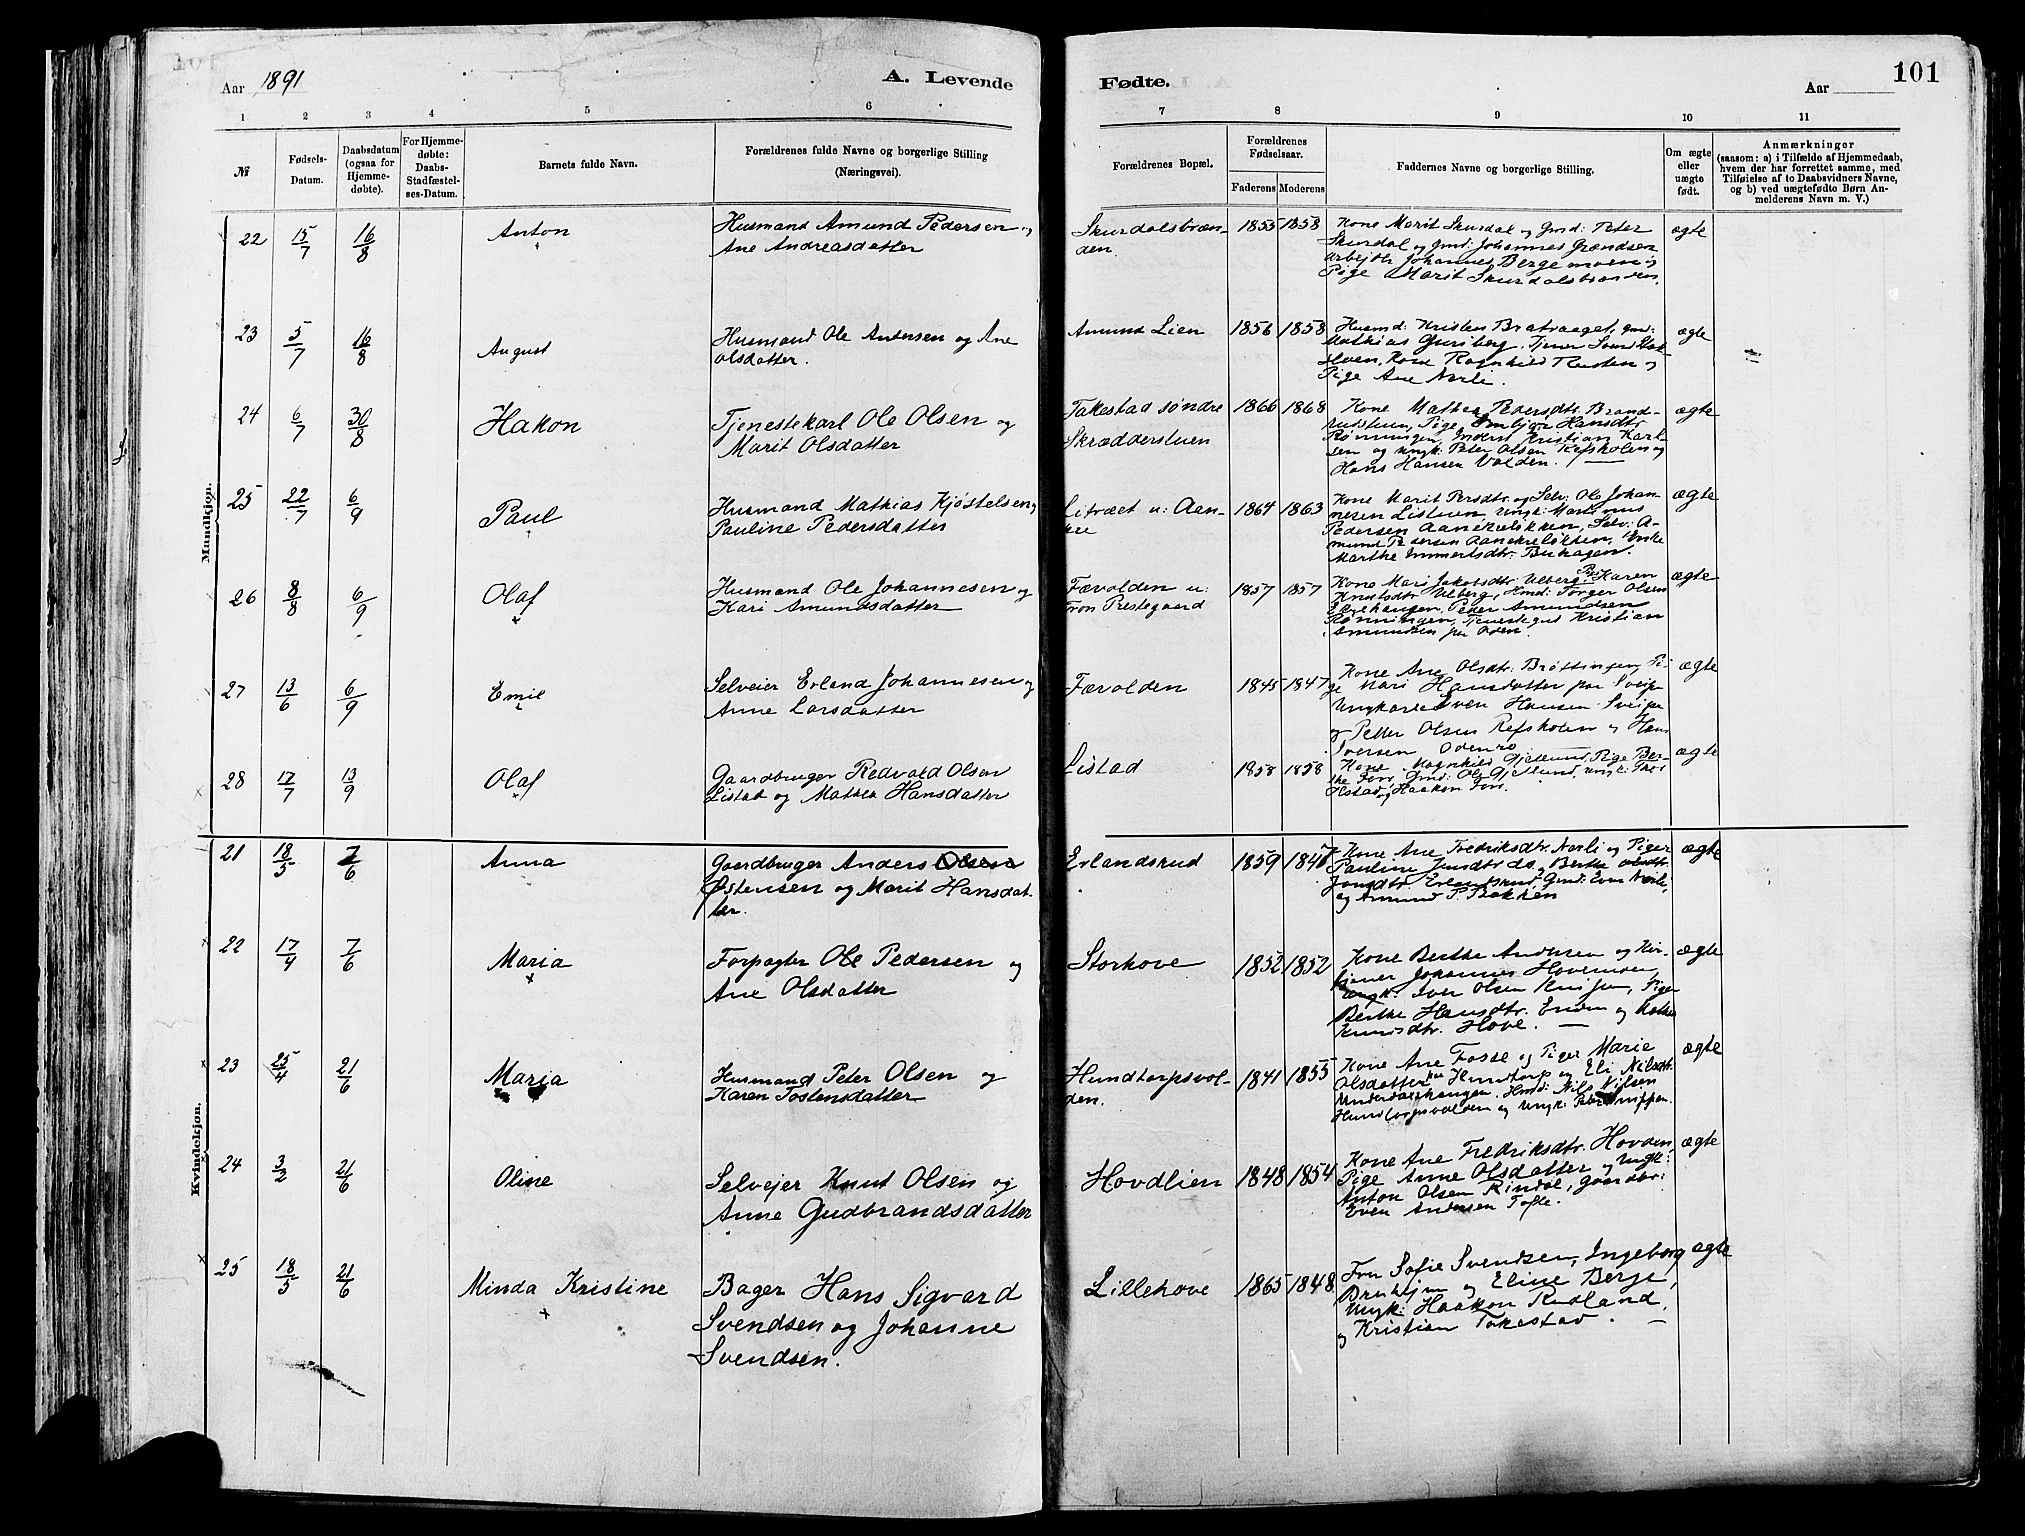 Aar 1891
A. Levende
Fødte.
Aar
101
1 2 3 4 5 6 7 8 9 10 11
№
Fødsels-
Datum.
Daabsdatum
(ogsaa for
Hjemme-
døbte).
For Hjemme-
døbte:
Daabs-
Stadfæstel-
ses-Datum.
Barnets fulde Navn.
Forældrenes fulde Navne og borgerlige Stilling
(Næringsvei).
Forældrenes Bopæl.
Forældrenes
Fødselsaar.
Faderens Moderens
Faddernes Navne og borgerlige Stilling.
Om ægte
eller
uægte
født.
Anmærkninger
(saasom: a) i Tilfælde af Hjemmedaab,
hvem der har forrettet samme, med
Tilføielse af to Daabsvidners Navne,
og b) ved uægtefødte Børn An-
melderens Navn m. V.)
Mandkjøn.
22 15/7 16/8 Anton
Husmand Amund Pedersen og
Ane Andreasdatter
Skurdalsbræn-
den.
1855 1858
Kone Marit Skurdal og Gmd: Peter
Skurdal og Gmd: Johannes Grændsen
Arbejdr. Johannes Bergemoen og
Pige Marit Skurdalsbrænden.
ægte
23 5/7 16/8 August
Husmand Ole Andersen og Ane
Olsdatter.
Amund Lien
1856 1858
Husmd: Kristen Bratvaaget, Gmd:
Mathias Guriberg, Tjener
Kone Ragnhild Rusten og
Pige Ane Narli.
ægte
24 6/7 30/8 Hakon
Tjenestekarl Ole Olsen og
Marit Olsdatter
Takestad søndre
Skrædderstuen
1866 1868
Kone Mathea Pedersdtr. Brand-
vulstuen, Pige Hansdtr
Rønningen, Inderst Kristian Karl-
sen og Ungk: Peter Olsen Refsholen og
Hans Hansen Volden.
ægte
25 22/7 6/9 Paul
Husmand Mathias Kjøstelsen og
Pauline Pedersdatter
Litræet u: Aan-
kre
1864 1863
Kone Marit Persdtr. og Selv: Ole Johan-
nesen Listuen, Ungk: Martinus
Pedersen Aanekreløkken, Selv: A-
mund Pedersen Aanekreløkken, Enke
Marthe Emmertsdtr. Buhagen.
ægte
26 8/8 6/9 Olaf
Husmand Ole Johannesen og
Kari Amundsdatter
Færolden u:
Fron Prestegaard
1857 1857
Kone Mari Jakobsdtr. Ulberg, Pig: Karen
Knutsdtr Ulberg, Hmd: Torger Olsen
Peder Amundsen
Rønningen, Tjenestegut Kristian
Amundsen paa Oden.
ægte
27 13/6 6/9 Emil
Selveier Erland Johannesen og
Anne Larsdatter
Færolden
1845 1847
Kone Ane Olsdtr: Brøttingen, Pi-
ge Mari Hansdatter paa Sveipe
Ungkarle Sven Hansen Sveipe
og Petter Olsen Refsholen og Hans
Iversen Odenro
ægte
28 17/7 13/9 Olaf
Gaardbruger Redvald Olsen
Listad og Mathea Hansdatter
Listad
1858 1858
Kone Magnhild Gjetlund, Pige Ber-
the Forr, Gmd: Ole Gjetlund, Ungk: Thor
Ilstad og Haakon Forr.
ægte
Kvindekjøn.
21 18/5 7/6 Anna
Gaardbruger Anders Olsen
Østensen og Marit Hansdat-
ter.
Erlandsrud
1859 1847
Kone Ane Fredriksdtr. Narli og Piger
Pauline Jensdtr do, Berthe
Jonsdtr. Erlandsrud, Gmd: Even Narli,
og Amund P. Bakken
ægte
22 17/4 7/6 Maria
Forpagter Ole Pedersen og
Ane Olsdatter
Storhove
1852 1852
Kone Berthe Andersen og Kir-
ketjener Johannes Hovemoen,
Ungk: Iver Olsen Knijen, Piger
Berthe Hansdtr. Enden og Mathea
Knudsdtr. Hove.
ægte
23 25/4 21/6 Marja
Husmand Peter Olsen og
Karen Tostensdatter
Hundtorpsvol-
den.
1841 1855
Kone Ane Fosse og Piger Marie
Olsdatter Hundtorp og Eli Nilsdtr.
Underbakhaugen, Hmd: Nils Nilsen
Hundtorpsvolden og Ungk: Peter Knippen.
ægte
24 3/2 21/6 Oline
Selvejer Knut Olsen og
Anne Gudbrandsdatter
Hovdlien
1848 1854
Kone Ane Fredriksdtr. Hovden,
Pige Anne Olsdatter og Ungk:
Anton Olsen Rindal, Gaardbr:
Even Andersen Tofte.
ægte
25 18/5 21/6 Minda Kristine
Bager Hans Sigvard
Svendsen og Johanne
Svendsen.
Lillehove
1865 1848
Fru Sofie Svendsen, Ingeborg
og Eline Berge,
Ungk: Haakon Rudland,
og Kristian Takestad.
ægte